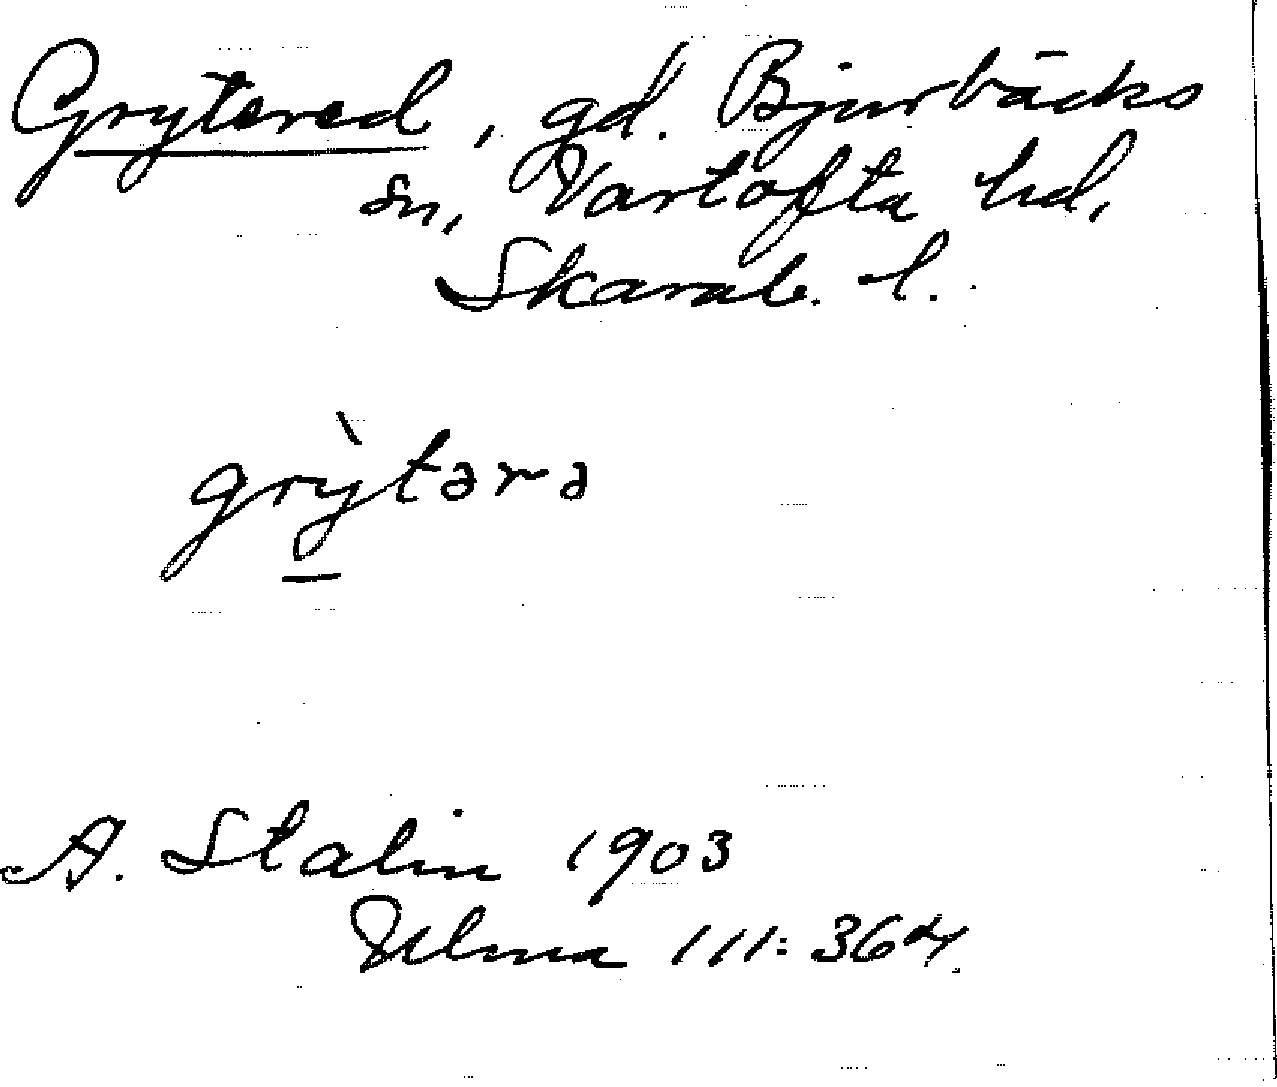 Grytered, gd. Bjurbäcks
sn, Vartofta hd,
Skarab. l.
grỳtərə
A. Stalin 1903
Ulma 111:364.